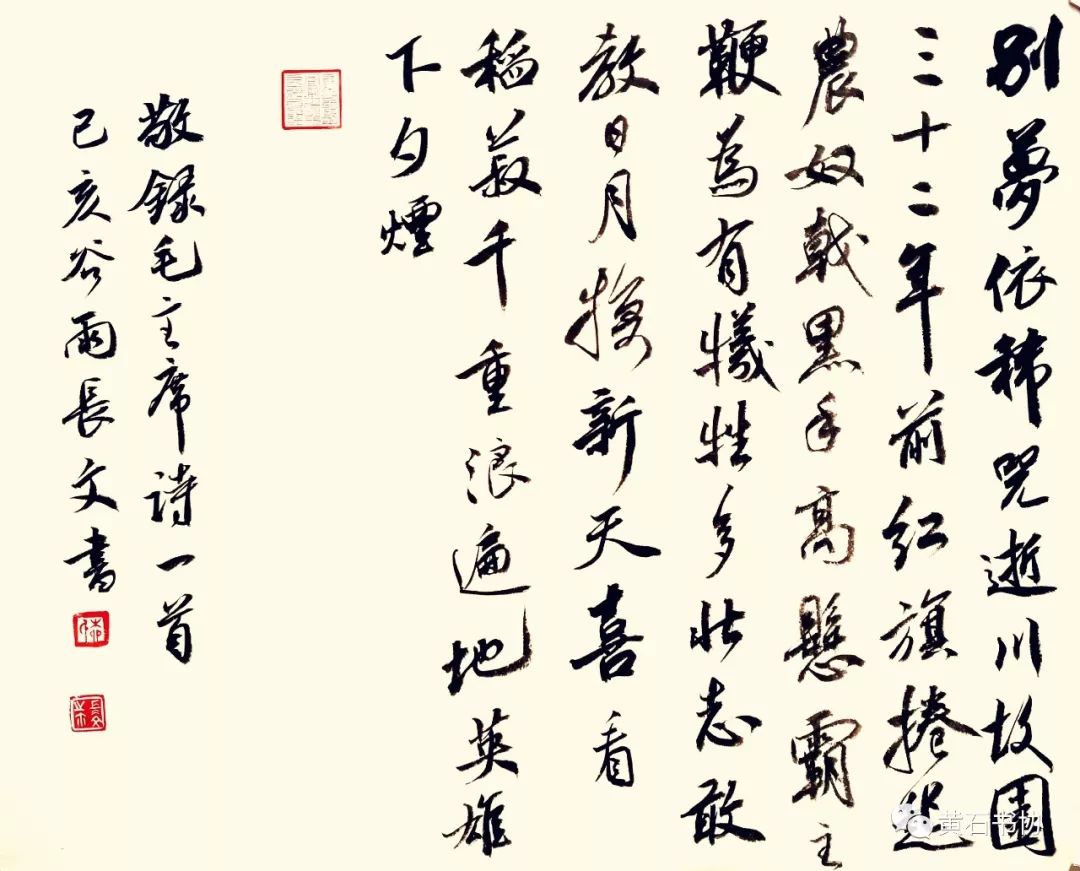 别夢依稀咒逝川故園
三十二年前红旗捲起
農奴戟黑手高懸霸主
鞭為有犧牲多壮志敢
教日月换新天喜看
稻菽千重浪遍地英雄
下夕煙
敬録毛主席詩一首
己亥谷雨長文書
黄石书协